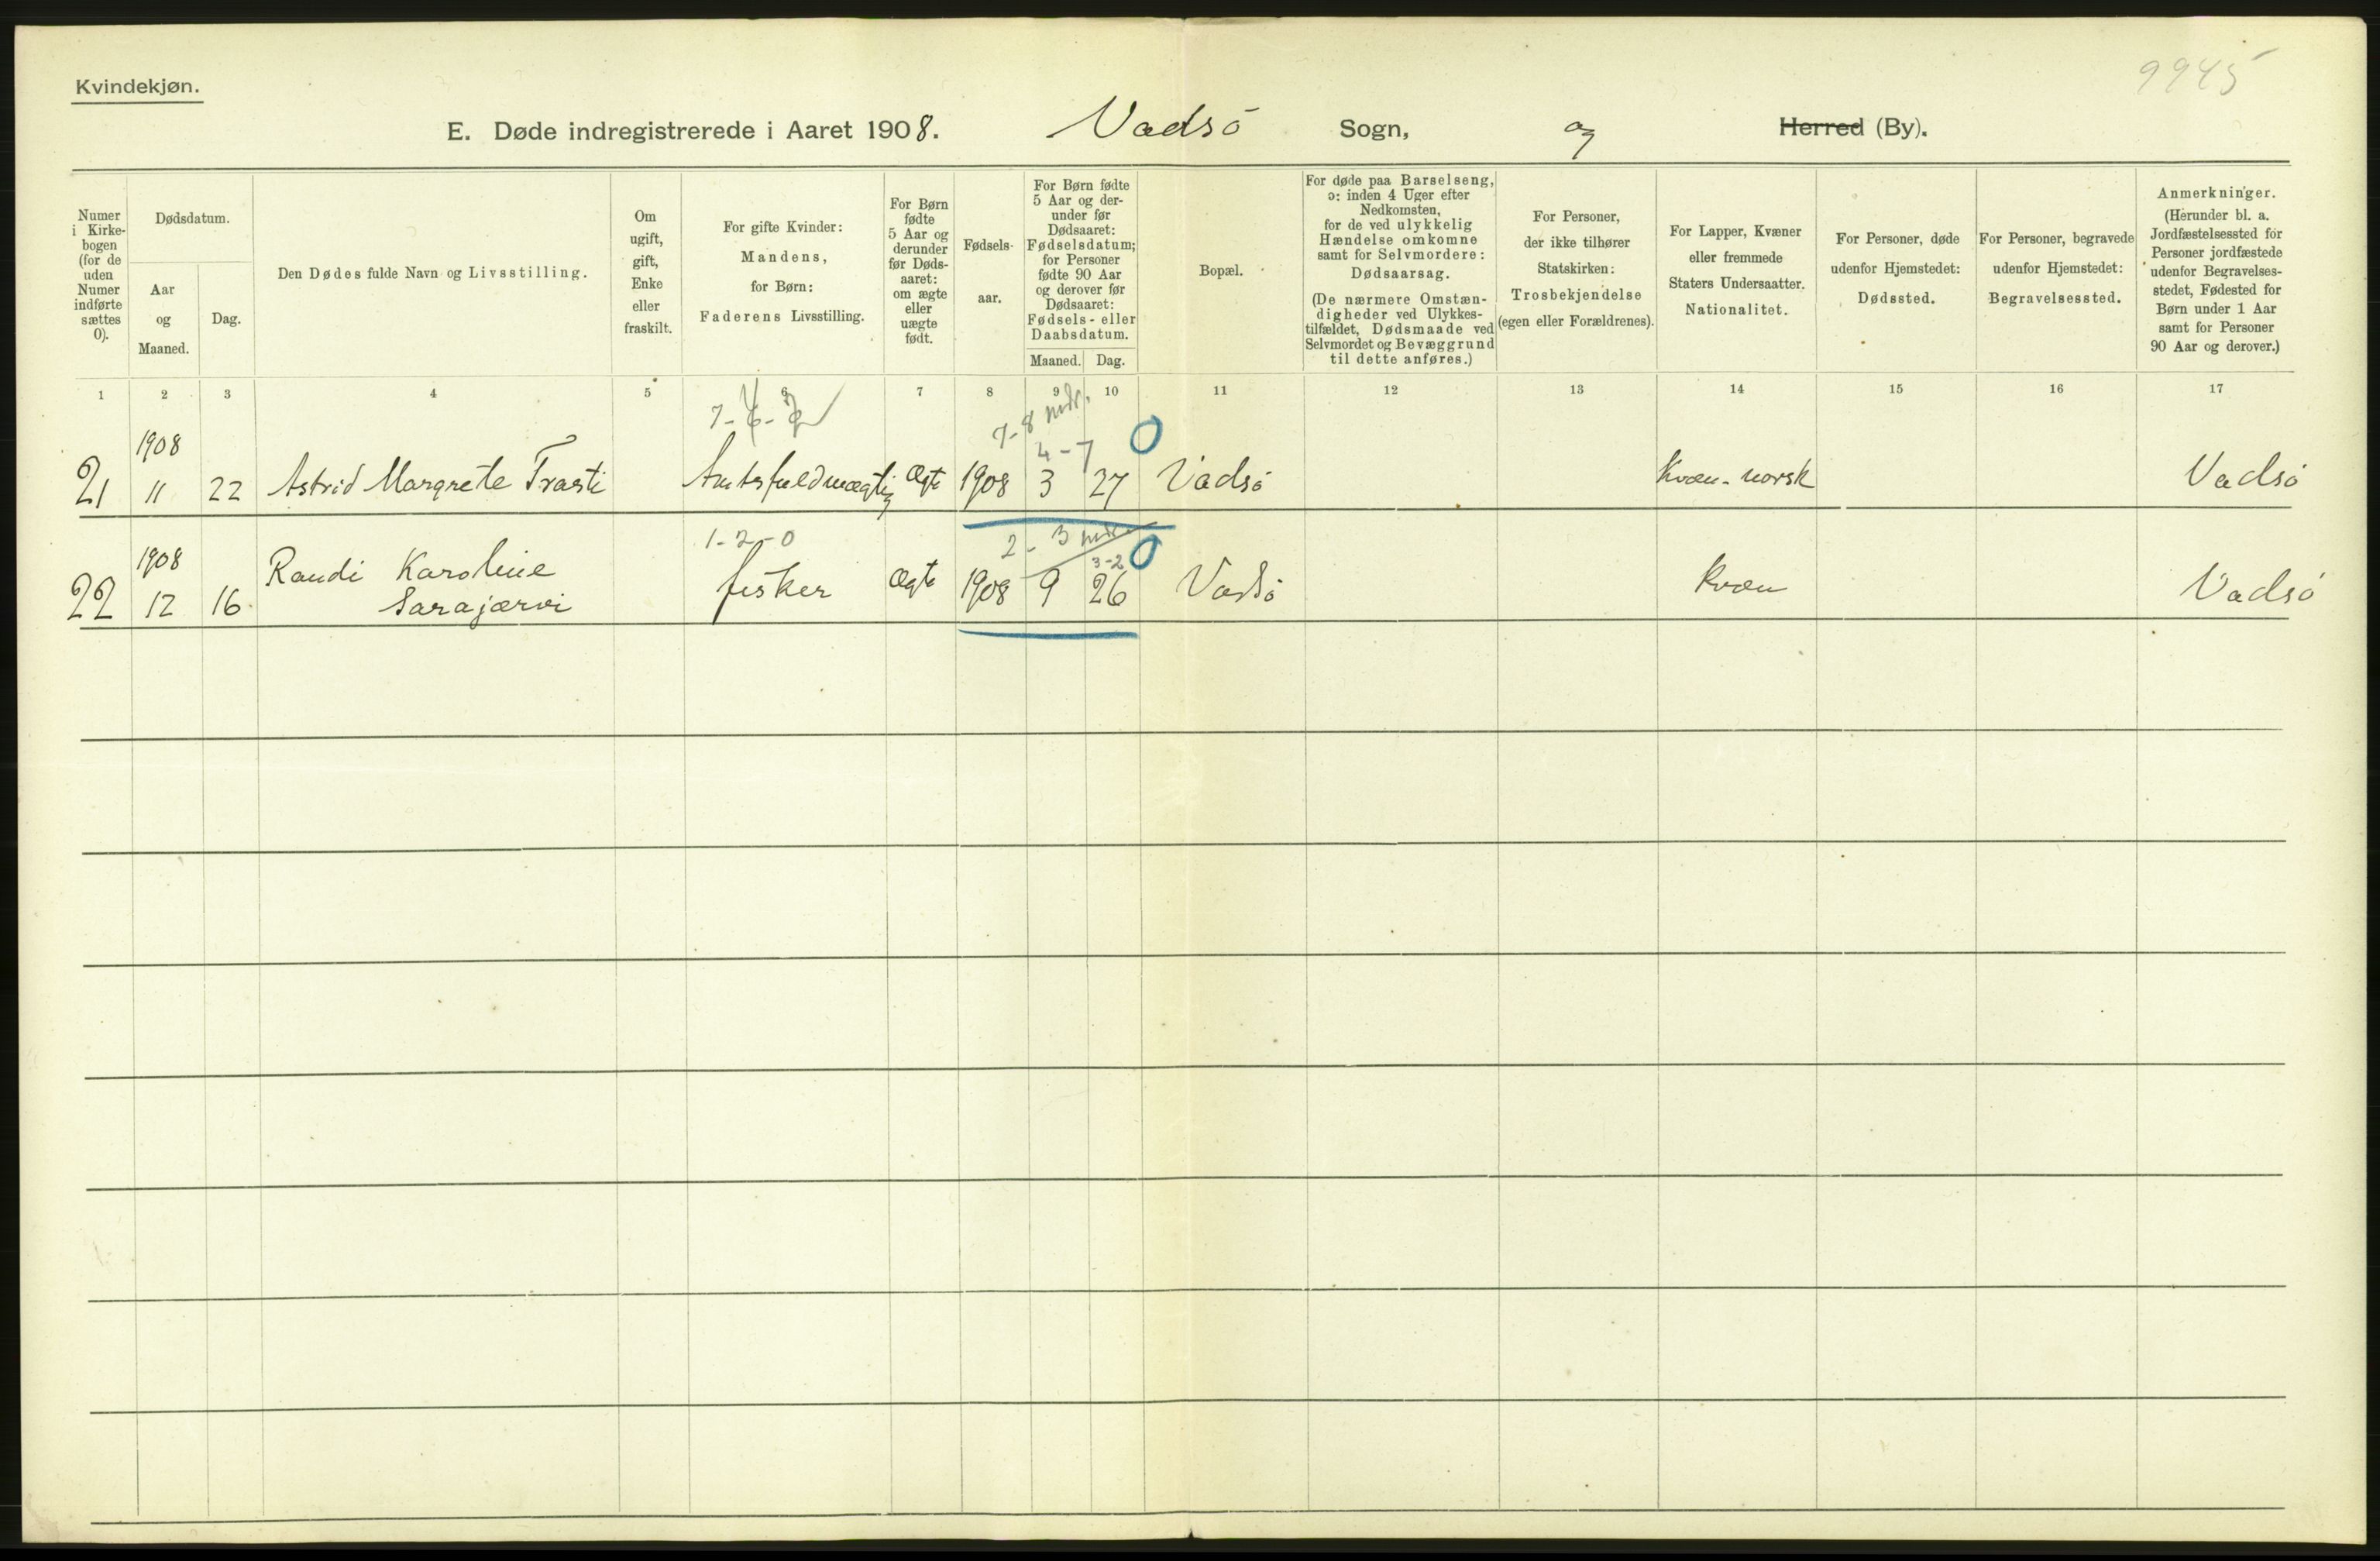 9945
Kvindekjøn.
E. Døde indregistrerede i Aaret 1908. Vadsö Sogn, og Herred (By).
Numer
i Kirke-
bogen
(for de
uden
Numer
indførte
sættes
0).
Dødsdatum.
Aar
og
Maaned.
Dag.
Den Dødes fulde Navn og Livsstilling.
Om
ugift,
gift,
Enke
eller
fraskilt.
For gifte Kvinder:
Mandens,
for Børn:
Faderens Livsstilling.
For Børn
fødte
5 Aar og
derunder
før Døds-
aaret:
om ægte
eller
uægte
født.
Fødsels-
aar.
For Børn fødte
5 Aar og der-
under før
Dødsaaret:
Fødselsdatum;
for Personer
fødte 90 Aar
og derover før
Dødsaaret:
Fødsels- eller
Daabsdatum.
Maaned. Dag.
Bopæl.
For døde paa Barselseng,
ɔ: inden 4 Uger efter
Nedkomsten,
for de ved ulykkelig
Hændelse omkomne
samt for Selvmordere:
Dødsaarsag.
(De nærmere Omstæn-
digheder ved Ulykkes-
tilfældet, Dødsmaade ved
Selvmordet og Bevæggrund
til dette anføres.)
For Personer,
der ikke tilhører
Statskirken:
Trosbekjendelse
(egen eller Forældrenes).
For Lapper, Kvæner
eller fremmede
Staters Undersaatter.
Nationalitet.
For Personer, døde
udenfor Hjemstedet:
Dødssted.
For Personer, begravede
udenfor Hjemstedet:
Begravelsessted.
Anmerkninger.
(Herunder bl. a.
Jordfæstelsessted for
Personer jordfæstede
udenfor Begravelses-
stedet, Fødested for
Børn under 1 Aar
samt for Personer
90 Aar og derover.)
1 2 3 4 5 6 7 8 9 10 11 12 13 14 15 16 17
7-8 mdr.
4-7 0
1908
21 11 22 Astrid Margrete Trasti Amtsfuldmægtig Ægte 1908 3 27 Vadsö Kvæn-norsk Vadsö
1-2-0 2-3 mdr.
3-2 0
1908
22 12 16 Randi Karoline
Sarajærvi fisker Ægte 1908 9 26 Vadsö Kvæn Vadsö